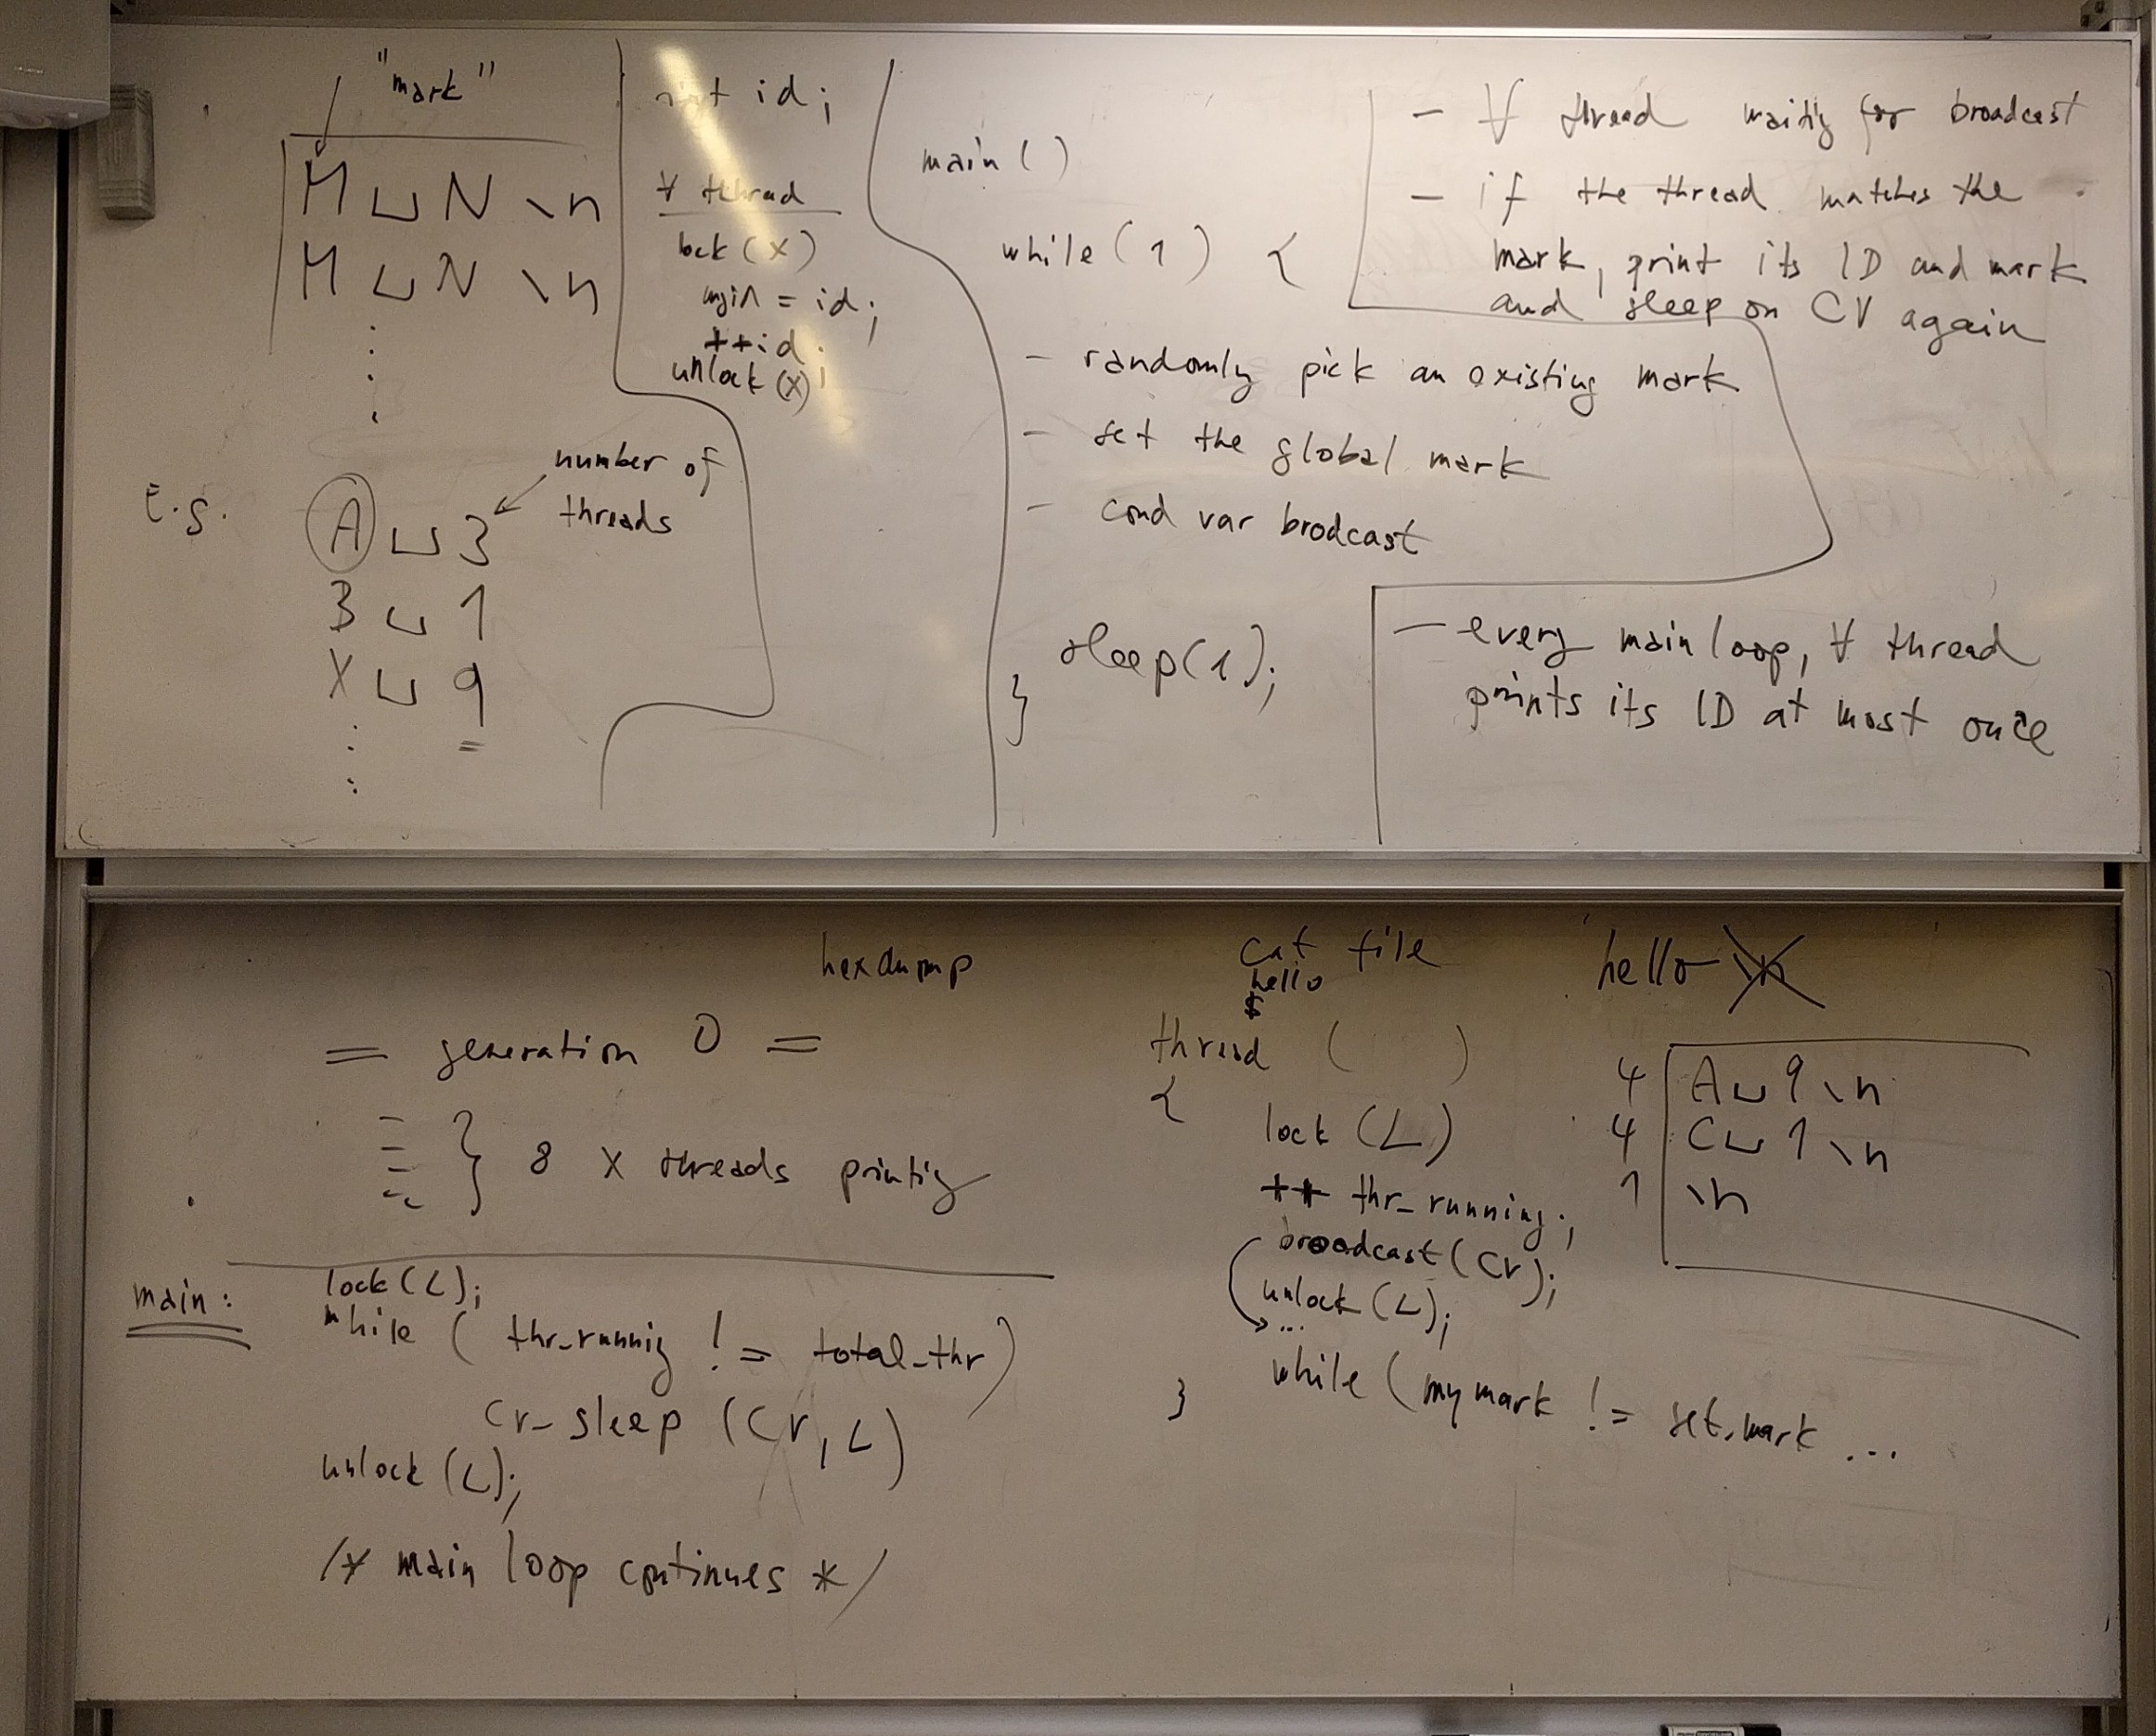 "mark"
M␣N\n
M␣N\n
E.g.
A␣3
number of
threads
B␣1
X␣9
int id;
∀ thread
lock(X)
myid = id;
++id;
unlock(X)
main()
while(1) {
- randomly pick an existing mark
- set the global mark
- cond var brodcast
sleep(1);
}
- ∀ thread waiting for broadcast
- if the thread matches the
mark, print its ID and mark
and sleep on CV again
- every main loop, ∀ thread
prints its ID at most once
hexdump
= generation 0 =
} 8 x threads printing
main:
lock(L);
while ( thr_running != total_thr)
cv_sleep (cv, L)
unlock(L);
/* main loop continues */
cat file
hello
$
hello \n
thread ( )
{
lock(L)
++ thr_running;
broadcast(cv);
unlock(L);
...
while (my mark != set.mark ...
}
4 A␣9\n
4 C␣1\n
1 \n